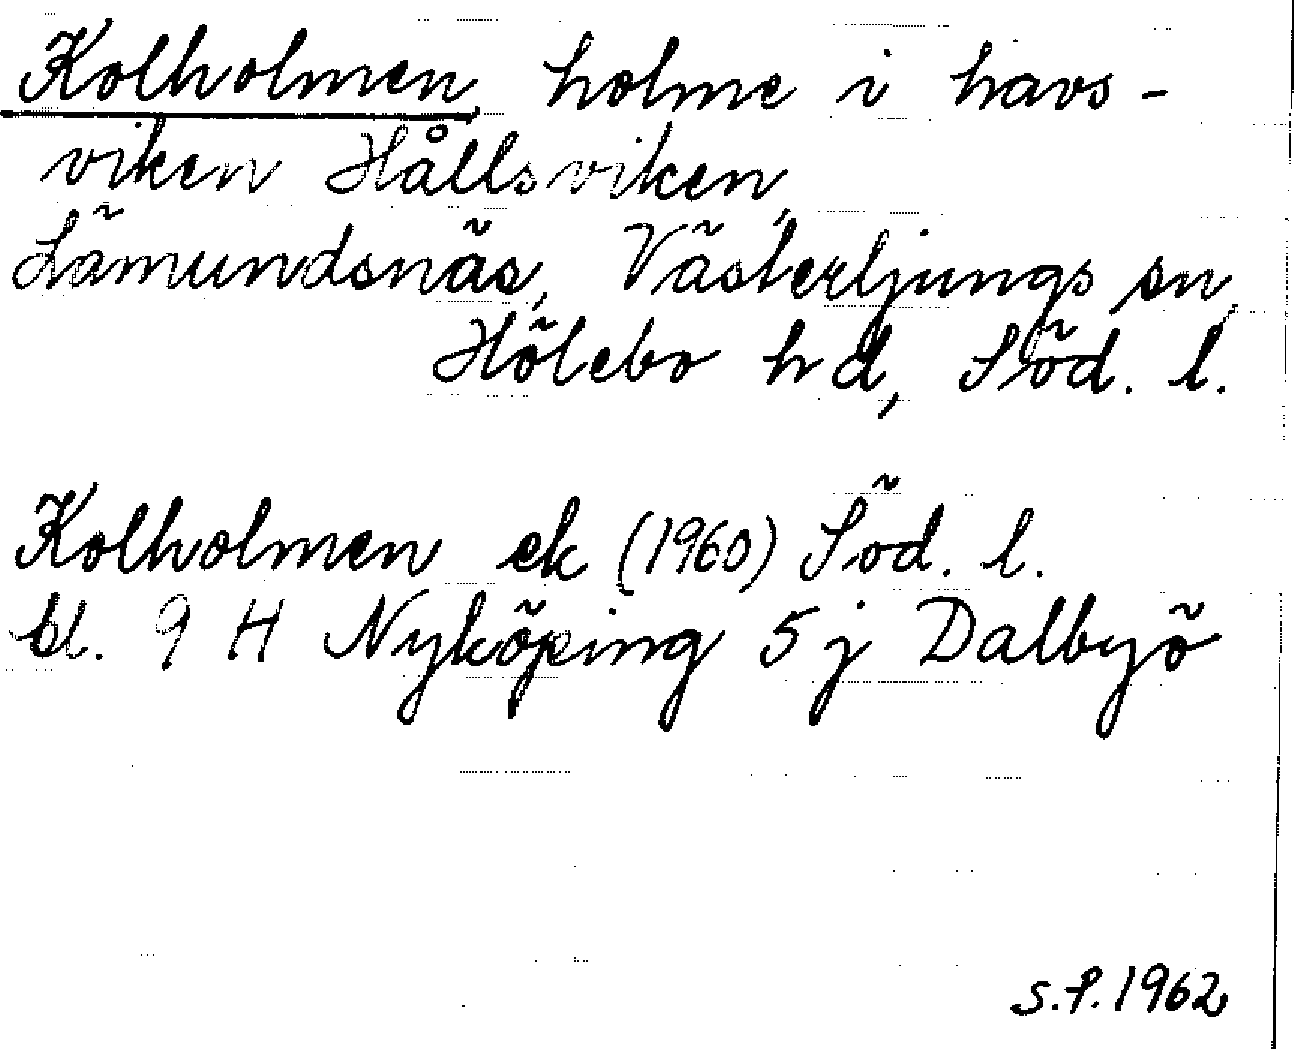 Kolholmen, holme i havs-
viken Hållsviken,
Lämundsnäs, Västerljungs sn,
Hölebo hd, Söd. l.
Kolholmen ek (1960) Söd. l.
bl. 9 H Nyköping 5 j Dalbyö
S.S. 1962